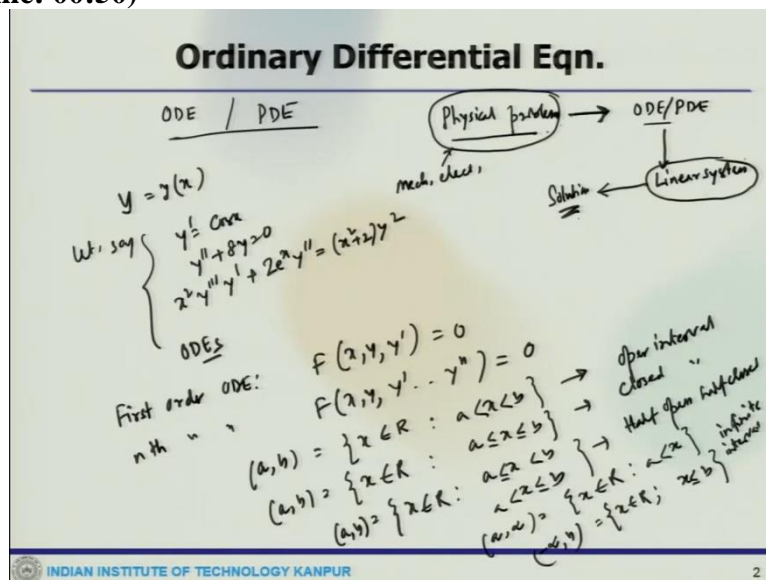 Ordinary Differential Eqn.
ODE / PDE
Physical problem → ODE/PDE
mech, elect,
Linear system
Solution
y = y(x)
Let, say
y' = cosx
y'' + 8y = 0
x² y''' y' + 2e^x y'' = (x²+2)y²
ODEs
First order ODE: F(x, y, y') = 0
nth " " F(x, y, y' .. y^n) = 0
(a,b) = {x ∈ R : a < x < b} → open interval
(a,b) = {x ∈ R : a ≤ x ≤ b} → closed "
(a,b) = {x ∈ R : a ≤ x < b
a < x ≤ b} → Half open half closed
(a, ∝) = {x ∈ R : a < x} infinite
(-∝, b) = {x ∈ R ; x ≤ b} interval
INDIAN INSTITUTE OF TECHNOLOGY KANPUR
2